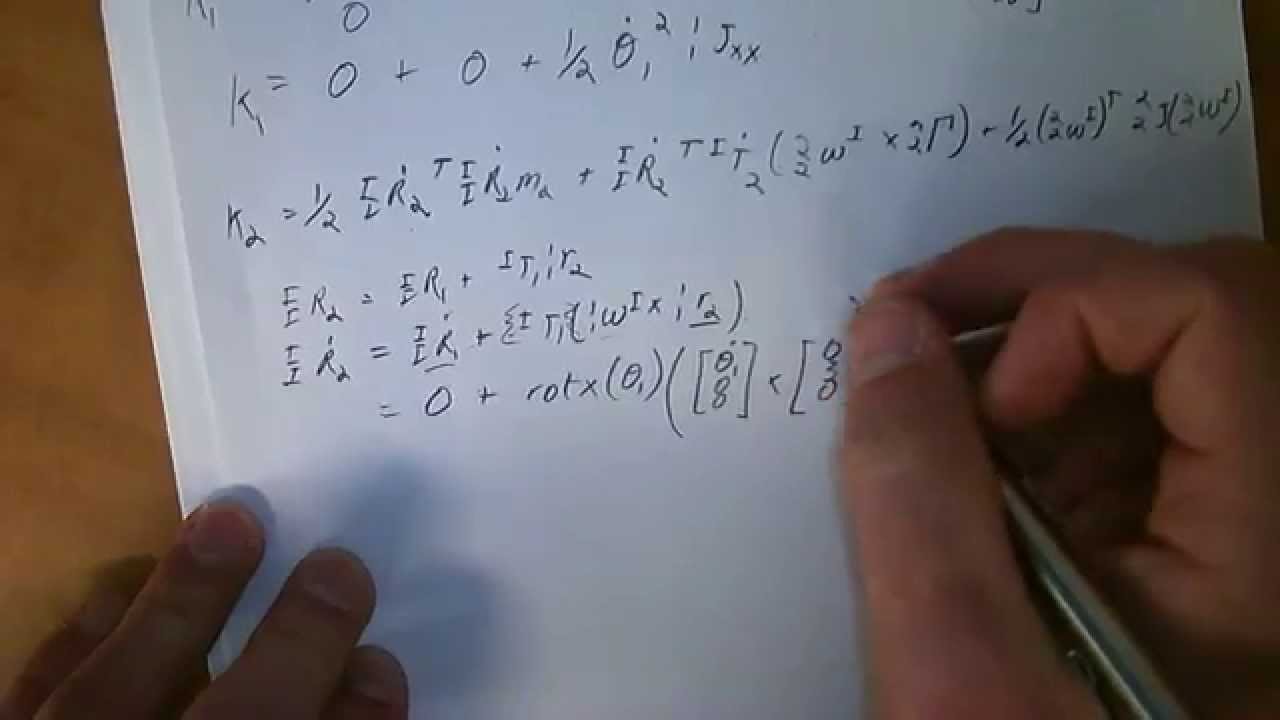 K₁
0
K₁ = 0 + 0 + 1/2 θ̇₁² ¹₁Jxx
K₂ = 1/2 ᴵᵢṘ₂ᵀ ᴵᵢṘ₂ m₂ + ᴵᵢṘ₂ᵀ ᴵṪ₂ (²₂ωᴵ × ²₂Γ) + 1/2 (²₂ωᴵ)ᵀ ²₂J(²₂ωᴵ)
ᴵᵢR₂ = ᴵᵢR₁ + ᴵT₁ ¹₁r₂
ᴵᵢṘ₂ = ᴵᵢṘ₁ + {ᴵT₁{(¹₁ωᴵ × ¹₁r₂)
= 0 + rotx(θ₁)([θ̇₁ 0 0] × [0